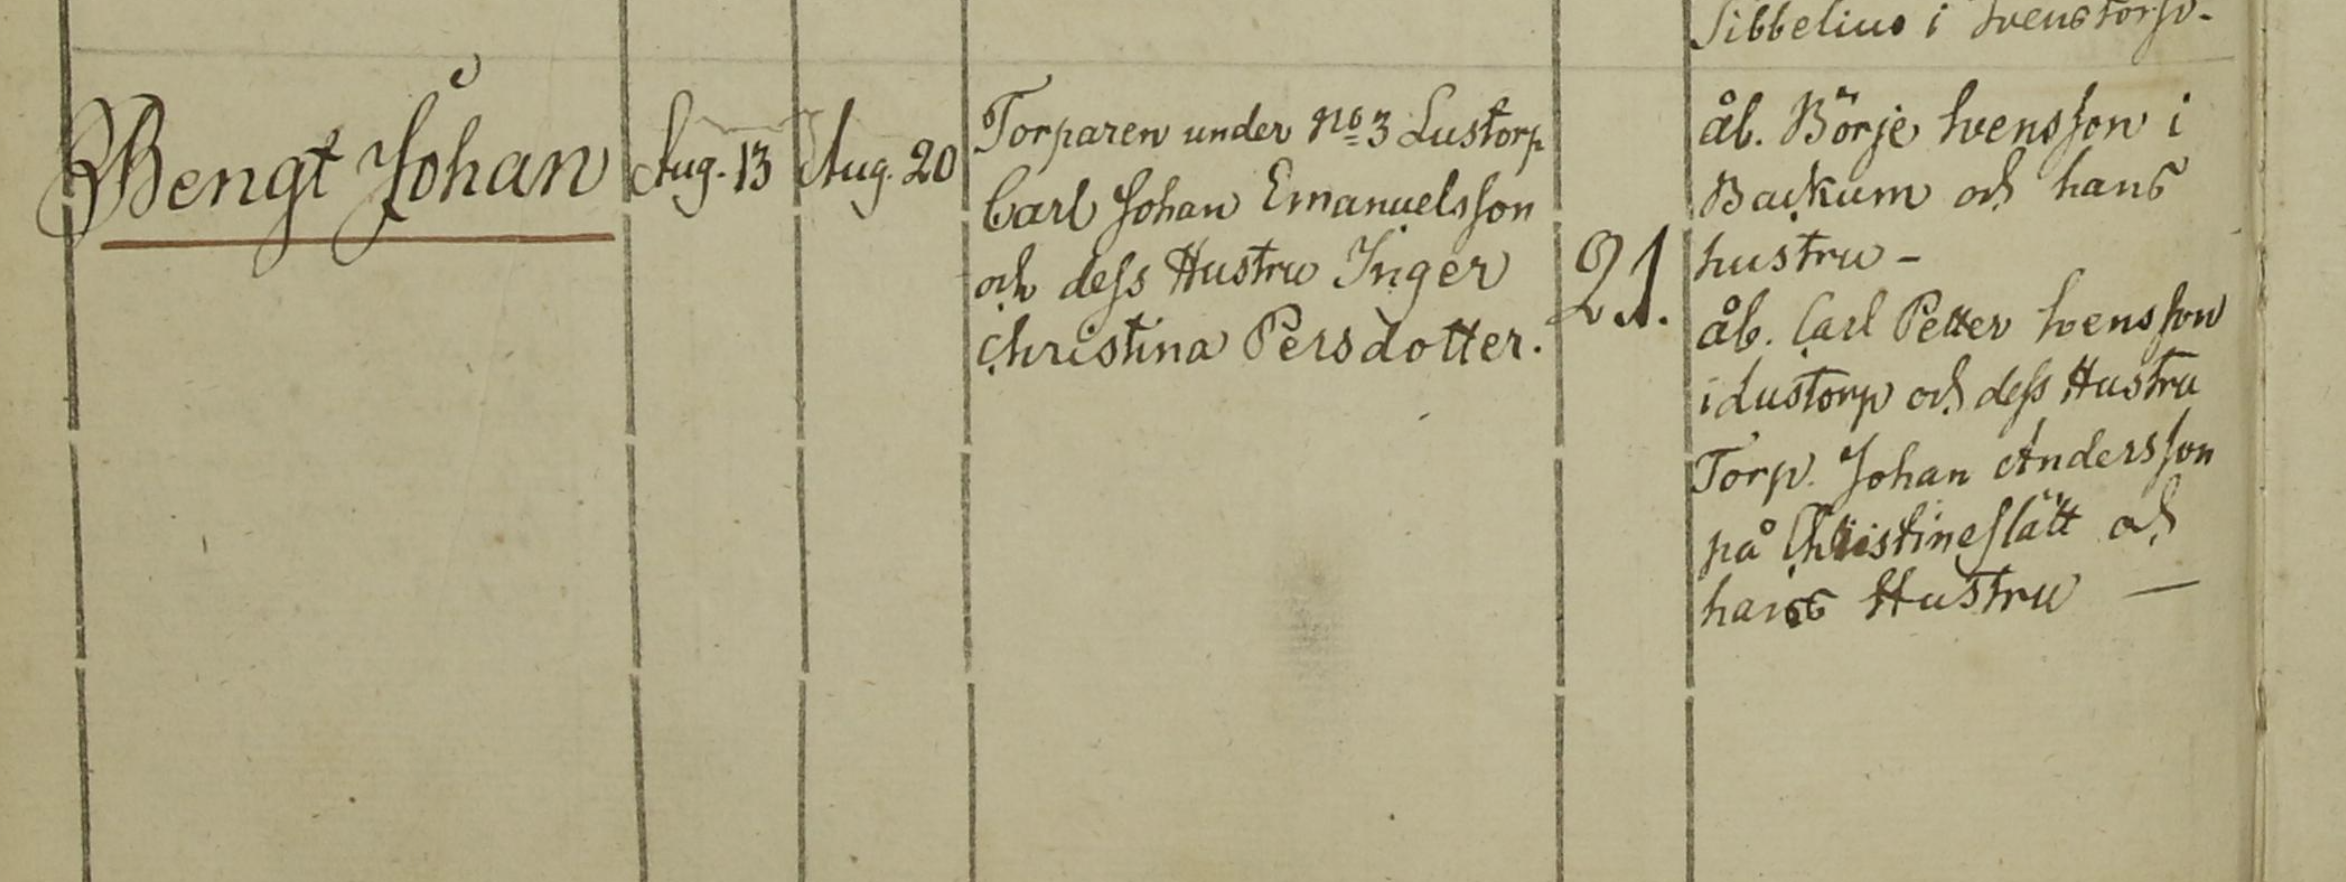 Sibbelius i Svenstorp.
Bengt Johan
Aug. 13
Aug. 20
Torparen under No 3 Lustorp
Carl Johan Emanuelsson
och dess Hustru Inger
Christina Persdotter.
21.
åb. Börje Svensson i
Backum och hans
hustru -
åb. Carl Petter Svensson
i Lustorp och dess Hustru
Torp. Johan Andersson
på Christineslätt och
hans Hustru —